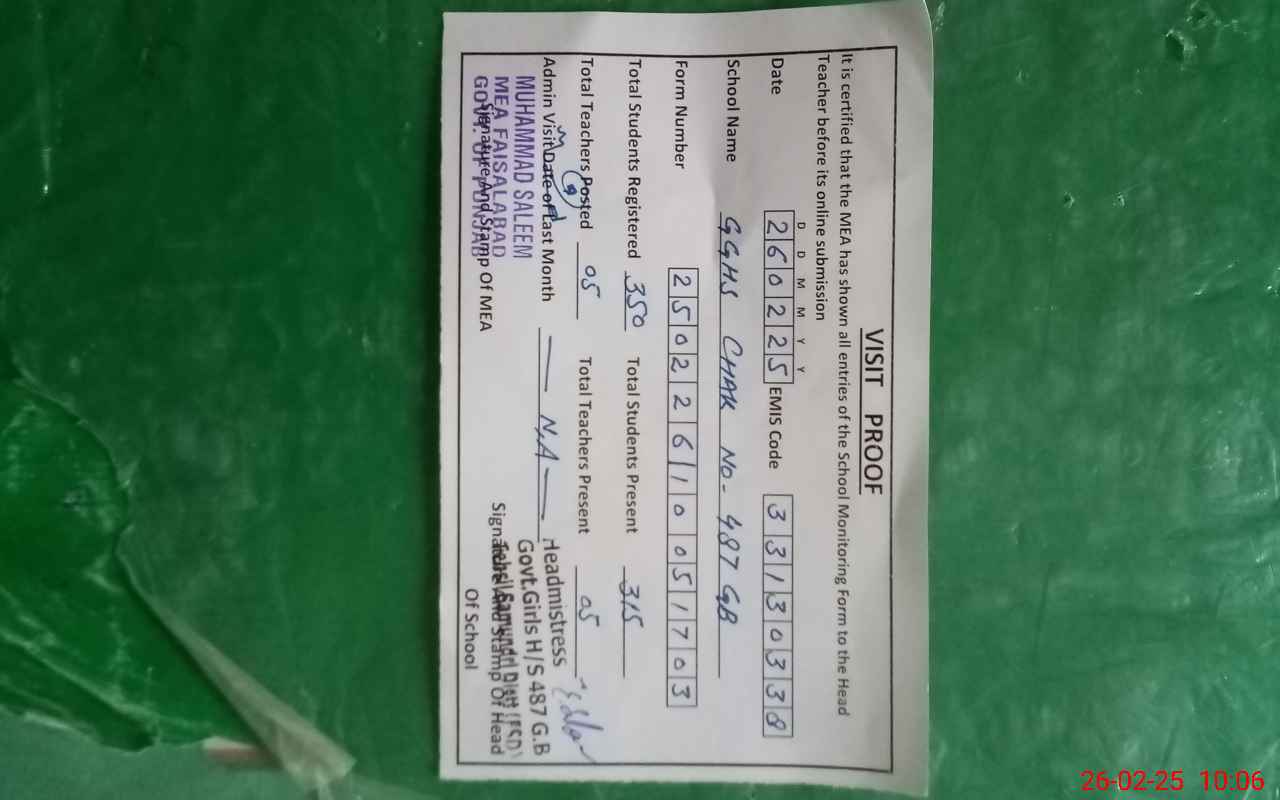 VISIT PROOF
It is certified that the MEA has shown all entries of the School Monitoring Form to the Head
Teacher before its online submission
D D M M Y Y
Date 260225 EMIS Code 33130338
School Name GGHS CHAK NO- 487 GB
Form Number 25022610051703
Total Students Registered 350 Total Students Present 315
Total Teachers Posted 05 Total Teachers Present 05
Admin Visit Date of Last Month — N.A —
MUHAMMAD SALEEM
MEA FAISALABAD
GOVT. OF PUNJAB
Signature And Stamp Of MEA
Headmistress
Govt.Girls H/S 487 G.B
Tehsil Samundri Distt (FSD)
Signature And Stamp Of Head
Of School
26-02-25 10:06